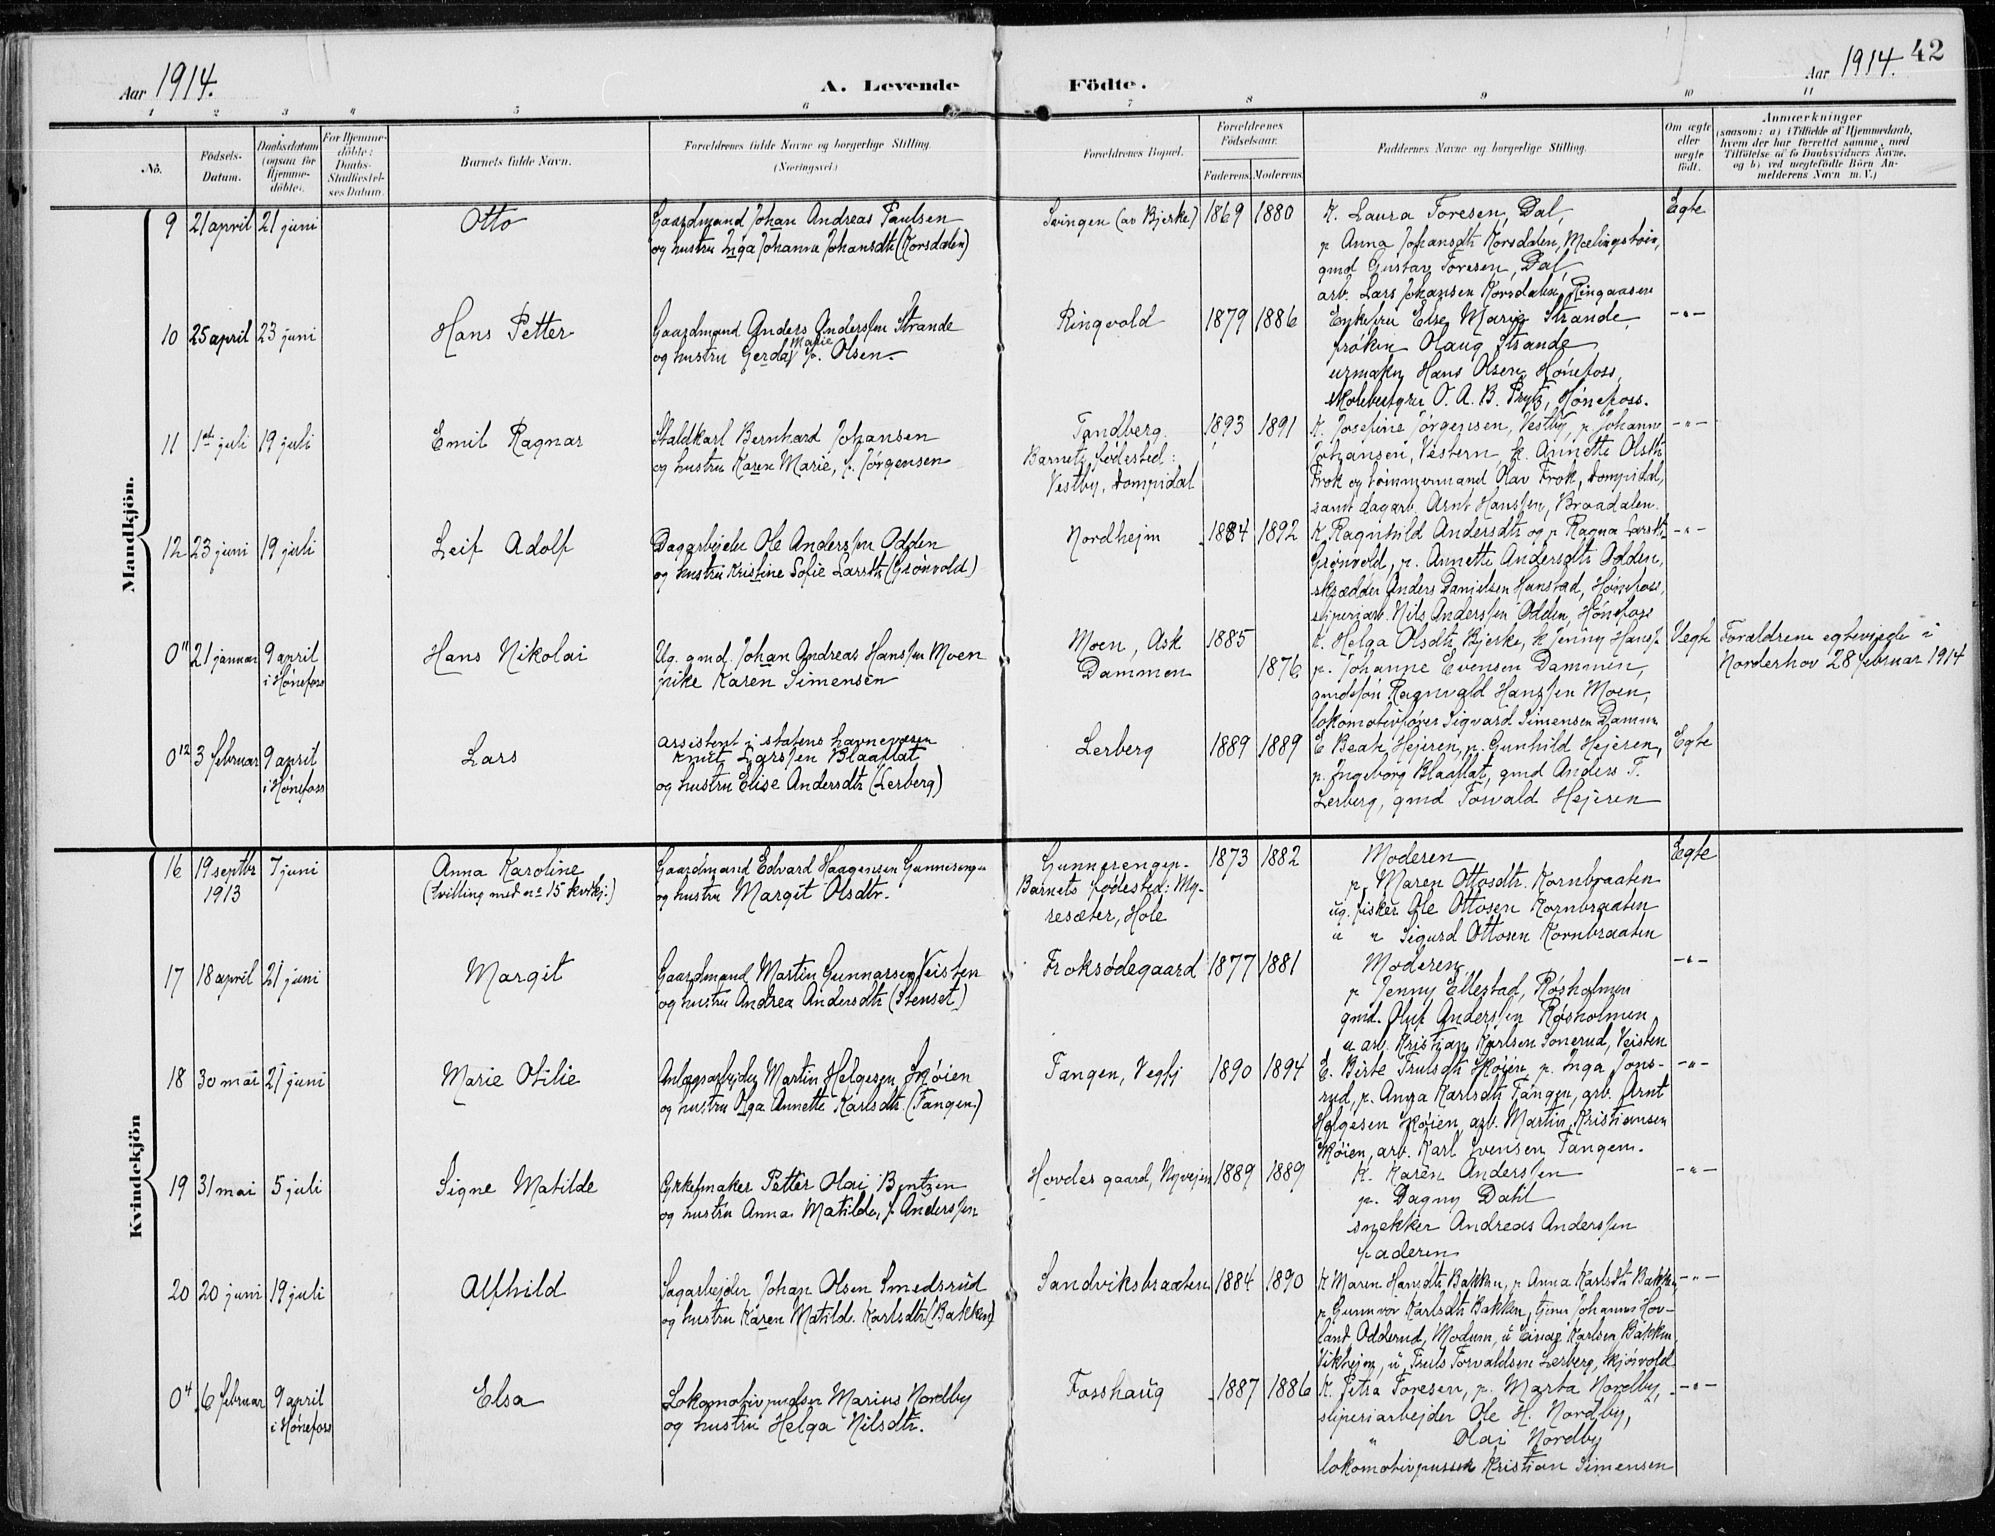 42
Aar 1914. A. Levende Födte. Aar 1914.
1 2 3 4 5 6 7 8 9 10 11
No. Födsels-Datum. Daabsdatum (ogsaa for Hjemme-döbte). For Hjemme-döbte: Daabs-Stadfæstel-ses Datum. Barnets fulde Navn. Forældrenes fulde Navne og borgerlige Stilling. (Næringsvei.) Forældrenes Bopæl. Forældrenes Födselsaar. Faderens. Moderens. Faddernes Navne og borgerlige Stilling. Om ægte eller uægte födt. Anmærkninger (saasom: a) i Tilfælde af Hjemmedaab, hvem der har forrettet samme, med Tilföielse af to Daabsvidners Navne, og b) ved uægtefödte Börn An-melderens Navn m. V.)
Mandkjön.
9 21 april 21 juni Otto Gaardmand Johan Andreas Paulsen Svingen (av Bjerke) 1869 1880 K. Laura Toresen, Dal, Egte
og hustru Inga Johanna Johansdtr (Korsdalen) p Anna Johansdtr Korsdalen,
gmd Gustav Toresen, Dal,
arb. Lars Johansen Korsdalen, Ringaasen
10 25 april 23 juni Hans Petter Gaardmand Anders Anderssen Strande Ringvold 1879 1886 Enkefru Else Marie Strande, -"-
og hustru Gerda Marie f. Olsen. frøken Olaug Strande
urmaker Hans Olsen Hønefoss,
O. A. B. Prytz, Hønefoss.
11 1st juli 19 juli Emil Ragnar Staldkarl Bernhard Johansen Tandberg. 1893 1891 K. Josefine Jørgensen, Vestby, p. Johanne -"-
og hustru Karen Marie, f. Jørgensen Barnets fødested: Johansen, Vestern, k. Annette Olsdtr
Vestby, Dompidal Frok og tømmermand Olav Frok, Dompidal,
samt dagarb. Arnt Hanssen, Braadalen.
12 23 juni 19 juli Leif Adolf Dagarbejder Ole Anderssen Odden Nordhejm 1884 1892 K. Ragnhild Andersdtr og p Ragna Larsdtr -"-
og hustru Kristine Sofie Larsdtr (Grønvold) Grønvold, p. Annette Andersdtr Odden,
skrædder Anders Danielsen Hanstad, Hønefoss,
sliperiarb. Nils Anderssen Odden, Hønefoss
0" 21 januar 9 april i Hønefoss Hans Nikolai Ug. gmd. Johan Andreas Hanssen Moen Moen, Ask 1885 K. Helga Olsdtr Bjerke, k Jenny Hanss. Uegte Forældrene egteviede i
pike Karen Simensen Dammen 1876 p. Johanne Evensen Dammen, Norderhov 28 februar 1914
gmdssøn Ragnvald Hanssen Moen,
lokomotivfører Sigvard Simensen Dammen
0¹² 3 februar 9 april i Hønefoss Lars assistent i statens havnevesen Lerberg 1889 1889 E Beate Hejeren, p. Gunhild Hejeren, Egte
Knut Larssen Blaaflat p. Ingeborg Blaaflat, gmd Anders T.
og hustru Elise Andersdtr (Lerberg) Lerberg, gmd Torvald Hejeren
Kvindekjön
16 19 septbr 1913 7 juni Anna Karoline Gaardmand Edvard Haagensen Gunnerengen Gunnerengen. 1873 1882 Moderen Egte
(Tvilling med no 15 kvkj.) og hustru Margit Olsdtr. Barnets fødested: My- p. Maren Ottosdtr. Kornbraaten
resæter, Hole ug. fisker Ole Ottosen Kornbraaten
u " Sigurd Ottosen Kornbraaten
17 18 april 21 juni Margit Gaardmand Martin Gunnarsen Veisten Froksødegaard 1877 1881 Moderen -"-
og hustru Andrea Andersdtr (Stenset) p Jenny Ellestad, Røsholmen
gmd. Oluf Anderssen Røsholmen
u arb. Kristian Karlsen Sonerud, Veisten
18 30 mai 21 juni Marie Otilie Anlægsarbejder Martin Helgesen Skøien Tangen, Vegfj 1890 1894 E. Birte Trulsdtr Skøien, p. Inga Jons- -"-
og hustru Olga Annette Karlsdtr (Tangen) rud, p. Anna Karlsdtr Tangen, arb. Arnt
Helgesen Skøien, arb. Martin Kristiansen
Skøien, arb. Karl Evensen Tangen.
19 31 mai 5 juli Signe Matilde Cykkelmaker Petter Olai Berntzen Hovdes gaard, Nyvejen 1889 1889 K. Karen Anderssen -"-
og hustru Anna Matilde, f. Anderssen p. Dagny Dahl
snekker Andreas Anderssen
faderen
20 20 juni 19 juli Alfhild Sagarbejder Johan Olsen Smedsrud Sandviksbraaten 1884 1890 K Maren Hansdtr Bakken, p Anna Karlsdtr Bakken -"-
og hustru Karen Matilde Karlsdtr (Bakken) p Gunnvor Karlsdtr Bakken, tjener Johannes Hov-
land Odderud, Modum, u Einar Karlsen Bakken,
Vikhejm, u Truls Torvaldsen Lerberg, Skjørvold
0⁴ 6 februar 9 april i Hønefoss Elsa Lokomotivpudser Marius Nordby Fosshaug 1887 1886 K. Petra Toresen, p. Marta Nordby, -"-
og hustru Helga Nilsdtr. sliperiarbejder Ole H. Nordby,
" Olai Nordby
lokomotivpusser Kristian Simensen